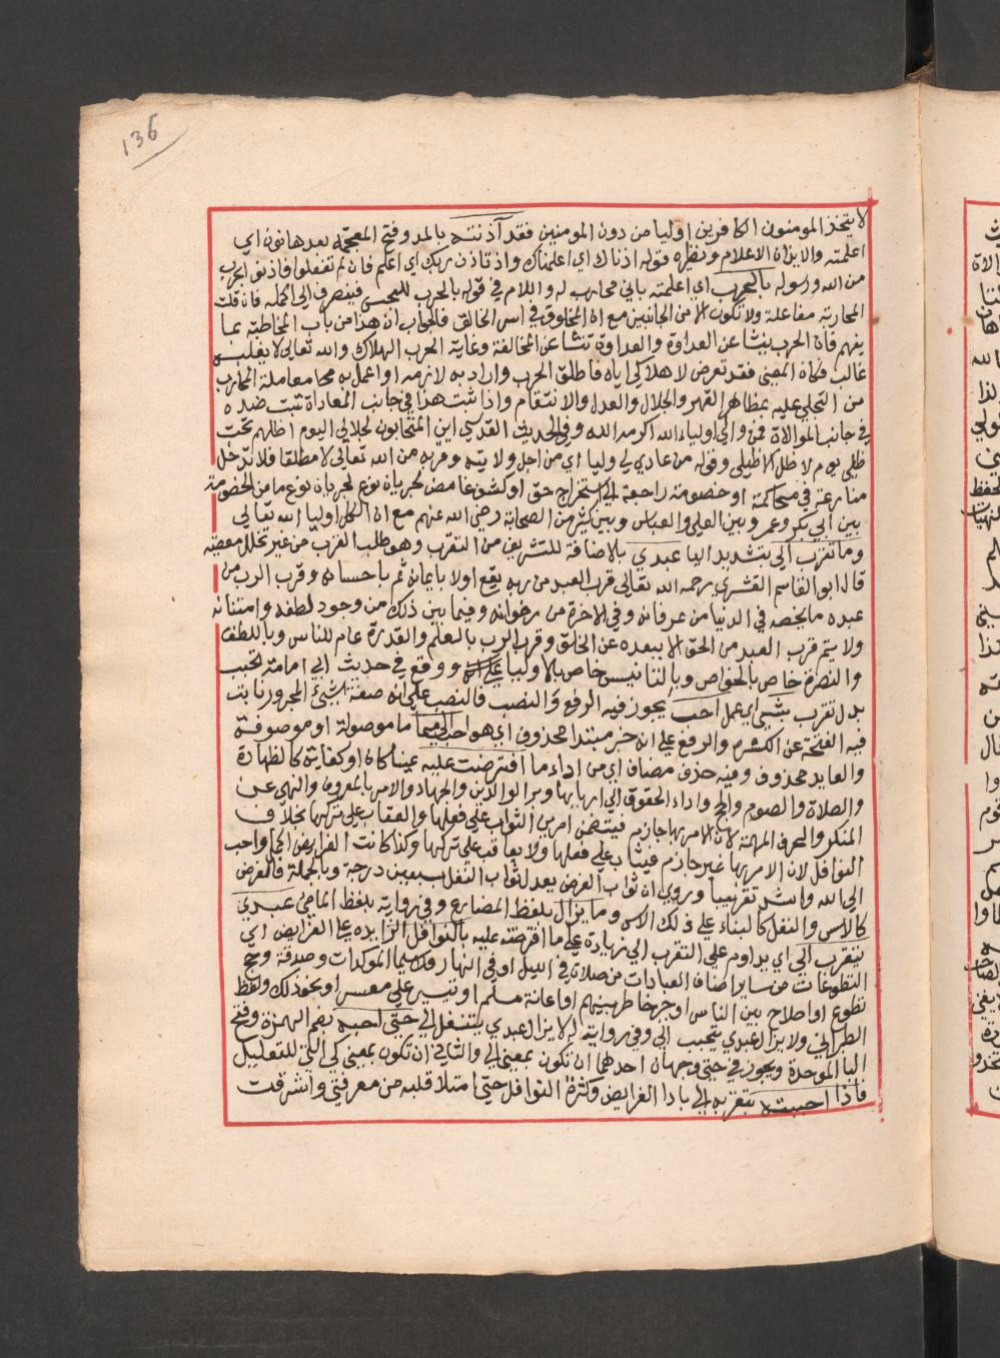 136
لا يتخذ المومنون الكافرين اوليا من دون المومنين فقد آذنته بالمد وفتح المعجمه بعدها نون اي
اعلمته والايذان الاعلام ونظيره قوله اذناك اي اعلمناك واذ تاذن ربك اي اعلم فان لم تفعلوا فاذنوا بحرب
من الله ورسوله بالحرب اي اعلمته باني محارب له واللام في قوله بالحرب للجنس فينصرف الى اكمله فان قلت
المحاربة مفاعلة ولا تكون الا من الجانبين مع ان المخلوق في اسر الخالق فالجواب ان هذا من باب المخاطبة بما
يفهم فان الحرب ينشا عن العداوة والعداوة تنشا عن المخالفة وغاية الحرب الهلاك والله تعالى لا يغلبه
غالب فكان المعنى فقد تعرض لاهلاكي اياه فاطلق الحرب واراد به لازمه او اعمل به معاملة المحارب
من التجلي عليه بمظاهر القهر والجلال والعدل والانتقام واذا ثبت هذا في جانب المعاداة ثبت ضده
في جانب الموالاة فمن والى اولياء الله اكرمه الله وفي الحديث القدسي اين المتحابون لجلالي اليوم اظلهم تحت
ظلي يوم لا ظل الا ظلي وقوله من عادي لي وليا اي من اجل ولايته وقربه من الله تعالى لا مطلقا فلا تدخل
منازعة في محاكمة او خصومة راجعة الى استخراج حق او كشف غامض لجريان نوع ما من الخصومة
بين ابي بكر وعمر وبين العلي والعباس وبين كثير من الصحابة رضي الله عنهم مع ان الكل اوليا الله تعالى
وما تقرب الي بتشديد اليا عبدي بالاضافة للتشريف من التقرب وهو طلب القرب من غير تخلل معصية
قال ابو القاسم القشيري رحمه الله تعالى قرب العبد من ربه يقع اولا بايمان ثم باحسانه وقرب الرب من
عبده ما يخصه في الدنيا من عرفانه وفي الاخرة من رضوانه وفيما بين ذلك من وجود لطفه وامتنانه
ولا يتم قرب العبد من الحق الا ببعده عن الخلق وقرب الرب بالعلم والقدرة عام للناس وباللطف
والنصرة خاص بالخواص وبالتانيس خاص بالاوليا ووقع في حديث ابي امامة يتحبب
بدل تقرب بشيء اي عمل احب يجوز فيه الرفع والنصب فالنصب على انه صفة لشيئ المجرور نابت
فيه الفتحة عن الكسره والرفع على انه خبر مبتدا محذوف اي هو احب الي مما ما موصولة او موصوفة
والعايد محذوف وفيه حذف مضاف اي من اداء ما افترضت عليه عينا كان او كفاية كالطهارة
والصلاة والصوم والحج واداء الحقوق الى اربابها وبر الوالدين والجهاد والامر بالمعروف والنهي عن
المنكر والحرف المهمة لان الامر بها جازم فيتضمن امرين الثواب على فعلها والعقاب على تركها بخلاف
النوافل لان الامر بها غير جازم فيثاب على فعلها ولا يعاقب على تركها ولذا كانت الفرايض اكمل واحب
الى الله واشد تقريبا وروي ان ثواب الفرض يعدل ثواب النفل بسبعين درجة وبالجملة فالفرض
كالاس والنفل كالبناء على ذلك الاس وما يزال بلفظ المضارع وفي رواية بلفظ الماضي عبدي
يتقرب الي اي يداوم على التقرب الي زيادة على ما افترضته عليه بالنوافل الزايده على الفرايض اي
التطوعات من ساير اصناف العبادات من صلاة في الليل او في النهار ولا سيما الموكدات وصدقة وحج
تطوع او اصلاح بين الناس او جبر خاطر يتيم او اعانة مسلم او تيسير على معسر او نحو ذلك ولفظ
الطبراني ولا يزال عبدي يتحبب الي وفي رواية له لا يزال عبدي يتنفل لي حتى احبه بضم الهمزة وفتح
البا الموحدة ويجوز في حتى وجهان احدهما ان تكون بمعنى الى والثاني ان تكون بمعنى كي التي للتعليل
فاذا احببته بتقربه الي بادا الفرايض وكثرة النوافل حتى امتلا قلبه من معرفتي واشرقت